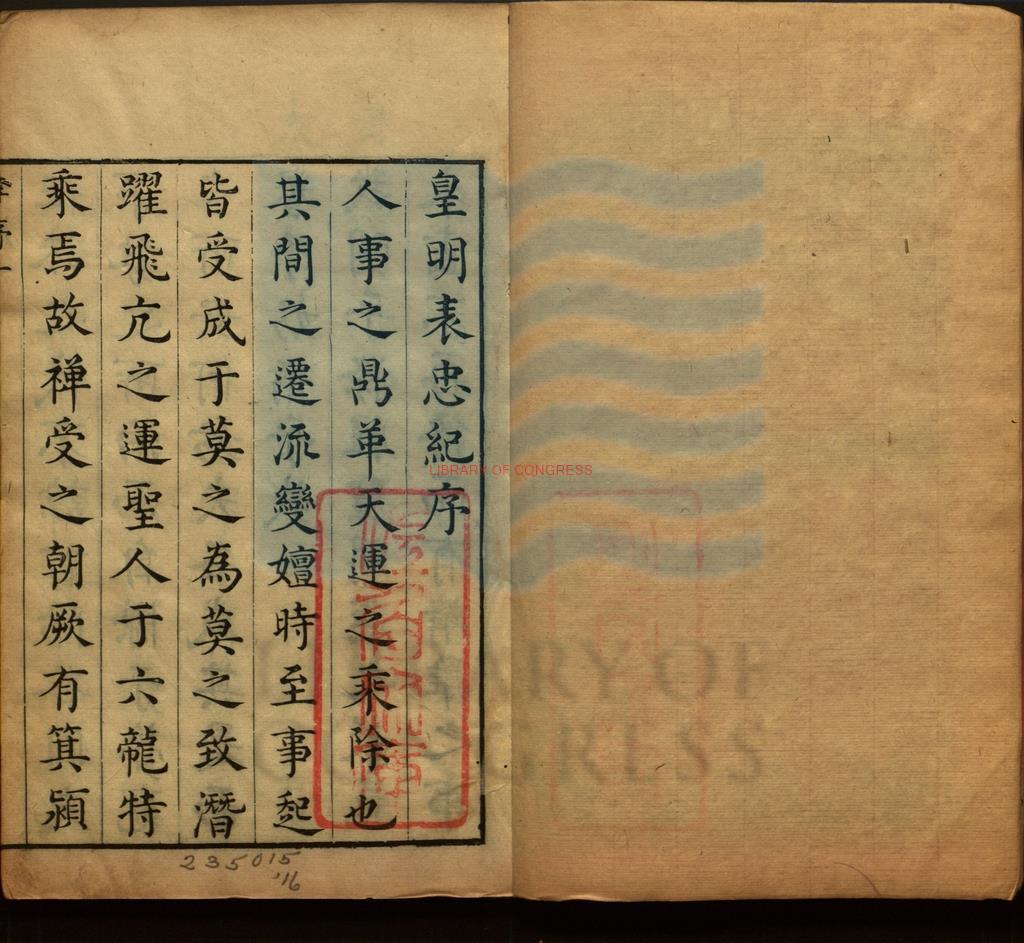 皇明表忠紀序
人事之鼎革天運之乘除也
其間之遷流變嬗時至事起
皆受成于莫之為莫之致潛
躍飛亢之運聖人于六龍特
乘焉故禅受之朝厥有箕潁
235015
'16
LIBRARY OF CONGRESS
LIBRARY OF
CONGRESS